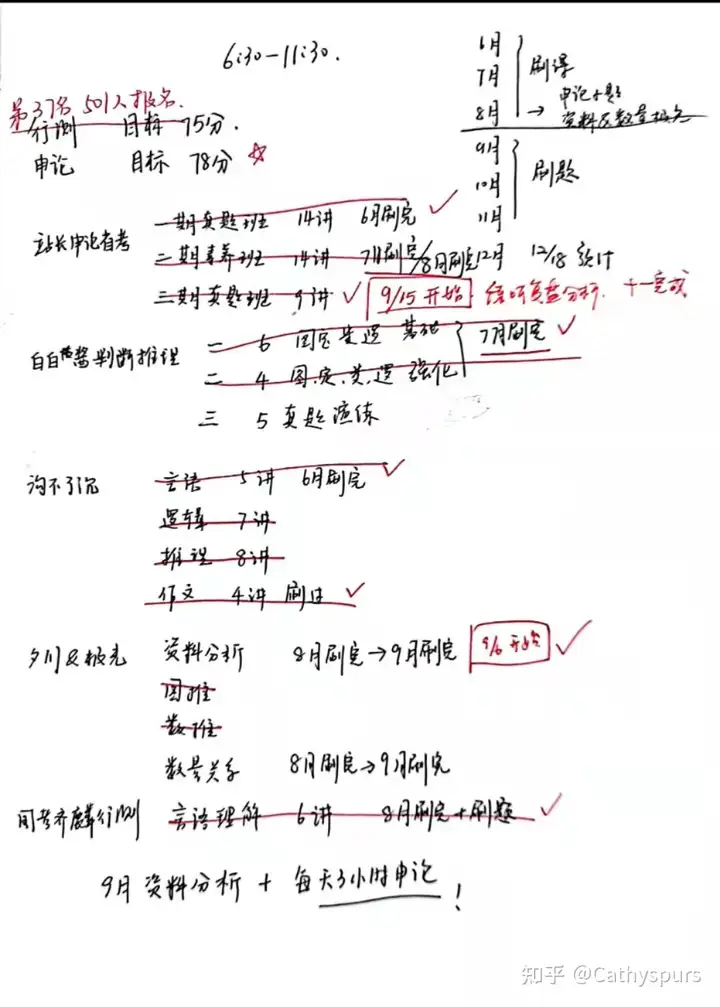 6:30-11:30.
6月
7月 刷课
8月 → 申论+题
资料&数量
9月
10月 刷题
11月
第37名 501人报名.
行测 目标 75分.
申论 目标 78分 ☆
站长申论自考 一期真题班 14讲 6月刷完 ✓
二期素养班 14讲 7月刷完/8月刷完 12月 12/18
三期真题班 9讲 ✓ 9/15开始 复盘分析. 十一完成
判断推理 一 6 图定类逻 基础
7月刷完 ✓
二 4 图.定.类.逻 强化
三 5 真题演练
沟不了沉 言语 5讲 6月刷完 ✓
逻辑 7讲
推理 8讲
作文 4讲 刷过 ✓
夕川& 资料分析 8月刷完→9月刷完 9/6开始 ✓
图推
数推
数量关系 8月刷完→9月刷完
齐麟行测 言语理解 6讲 8月刷完+刷题 ✓
9月 资料分析 + 每天3小时申论!
知乎 @Cathyspurs